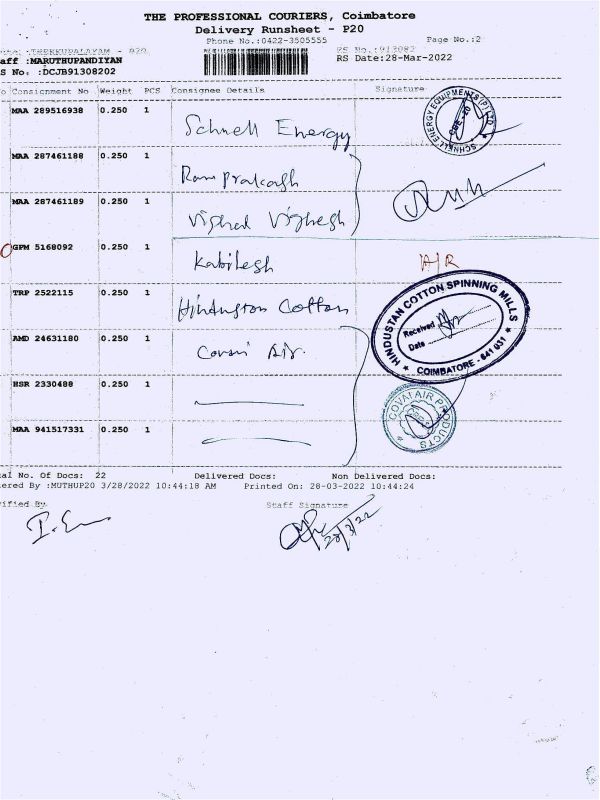 THE PROFESSIONAL COURIERS, Coimbatore
Delivery Runsheet - P20
Phone No.:0422-3505555 Page No.:2
THEKKUPALAYAM - P20 RS No.:913083
aff :MARUTHUPANDIYAN RS Date:28-Mar-2022
S No. :DCJB91308202
o Consignment No Weight PCS Consignee Details Signature
MAA 289516938 0.250 1 Schnell Energy
SCHNELL ENERGY EQUIPMENTS (P) LTD
CBE - 20
MAA 287461188 0.250 1 Ram prakash
MAA 287461189 0.250 1 Vishal Vighesh
GPM 5168092 0.250 1 Kabilesh A/R
TRP 2522115 0.250 1 Hindustan Cotton
HINDUSTAN COTTON SPINNING MILLS
Received
Date
COIMBATORE - 641 031
AMD 24631180 0.250 1 Covai Air.
HSR 2330488 0.250 1
COVAI AIR PRODUCTS
MAA 941517331 0.250 1
al No. Of Docs: 22 Delivered Docs: Non Delivered Docs:
ered By :MUTHUP20 3/28/2022 10:44:18 AM Printed On: 28-03-2022 10:44:24
ified By Staff Signature
28/3/22